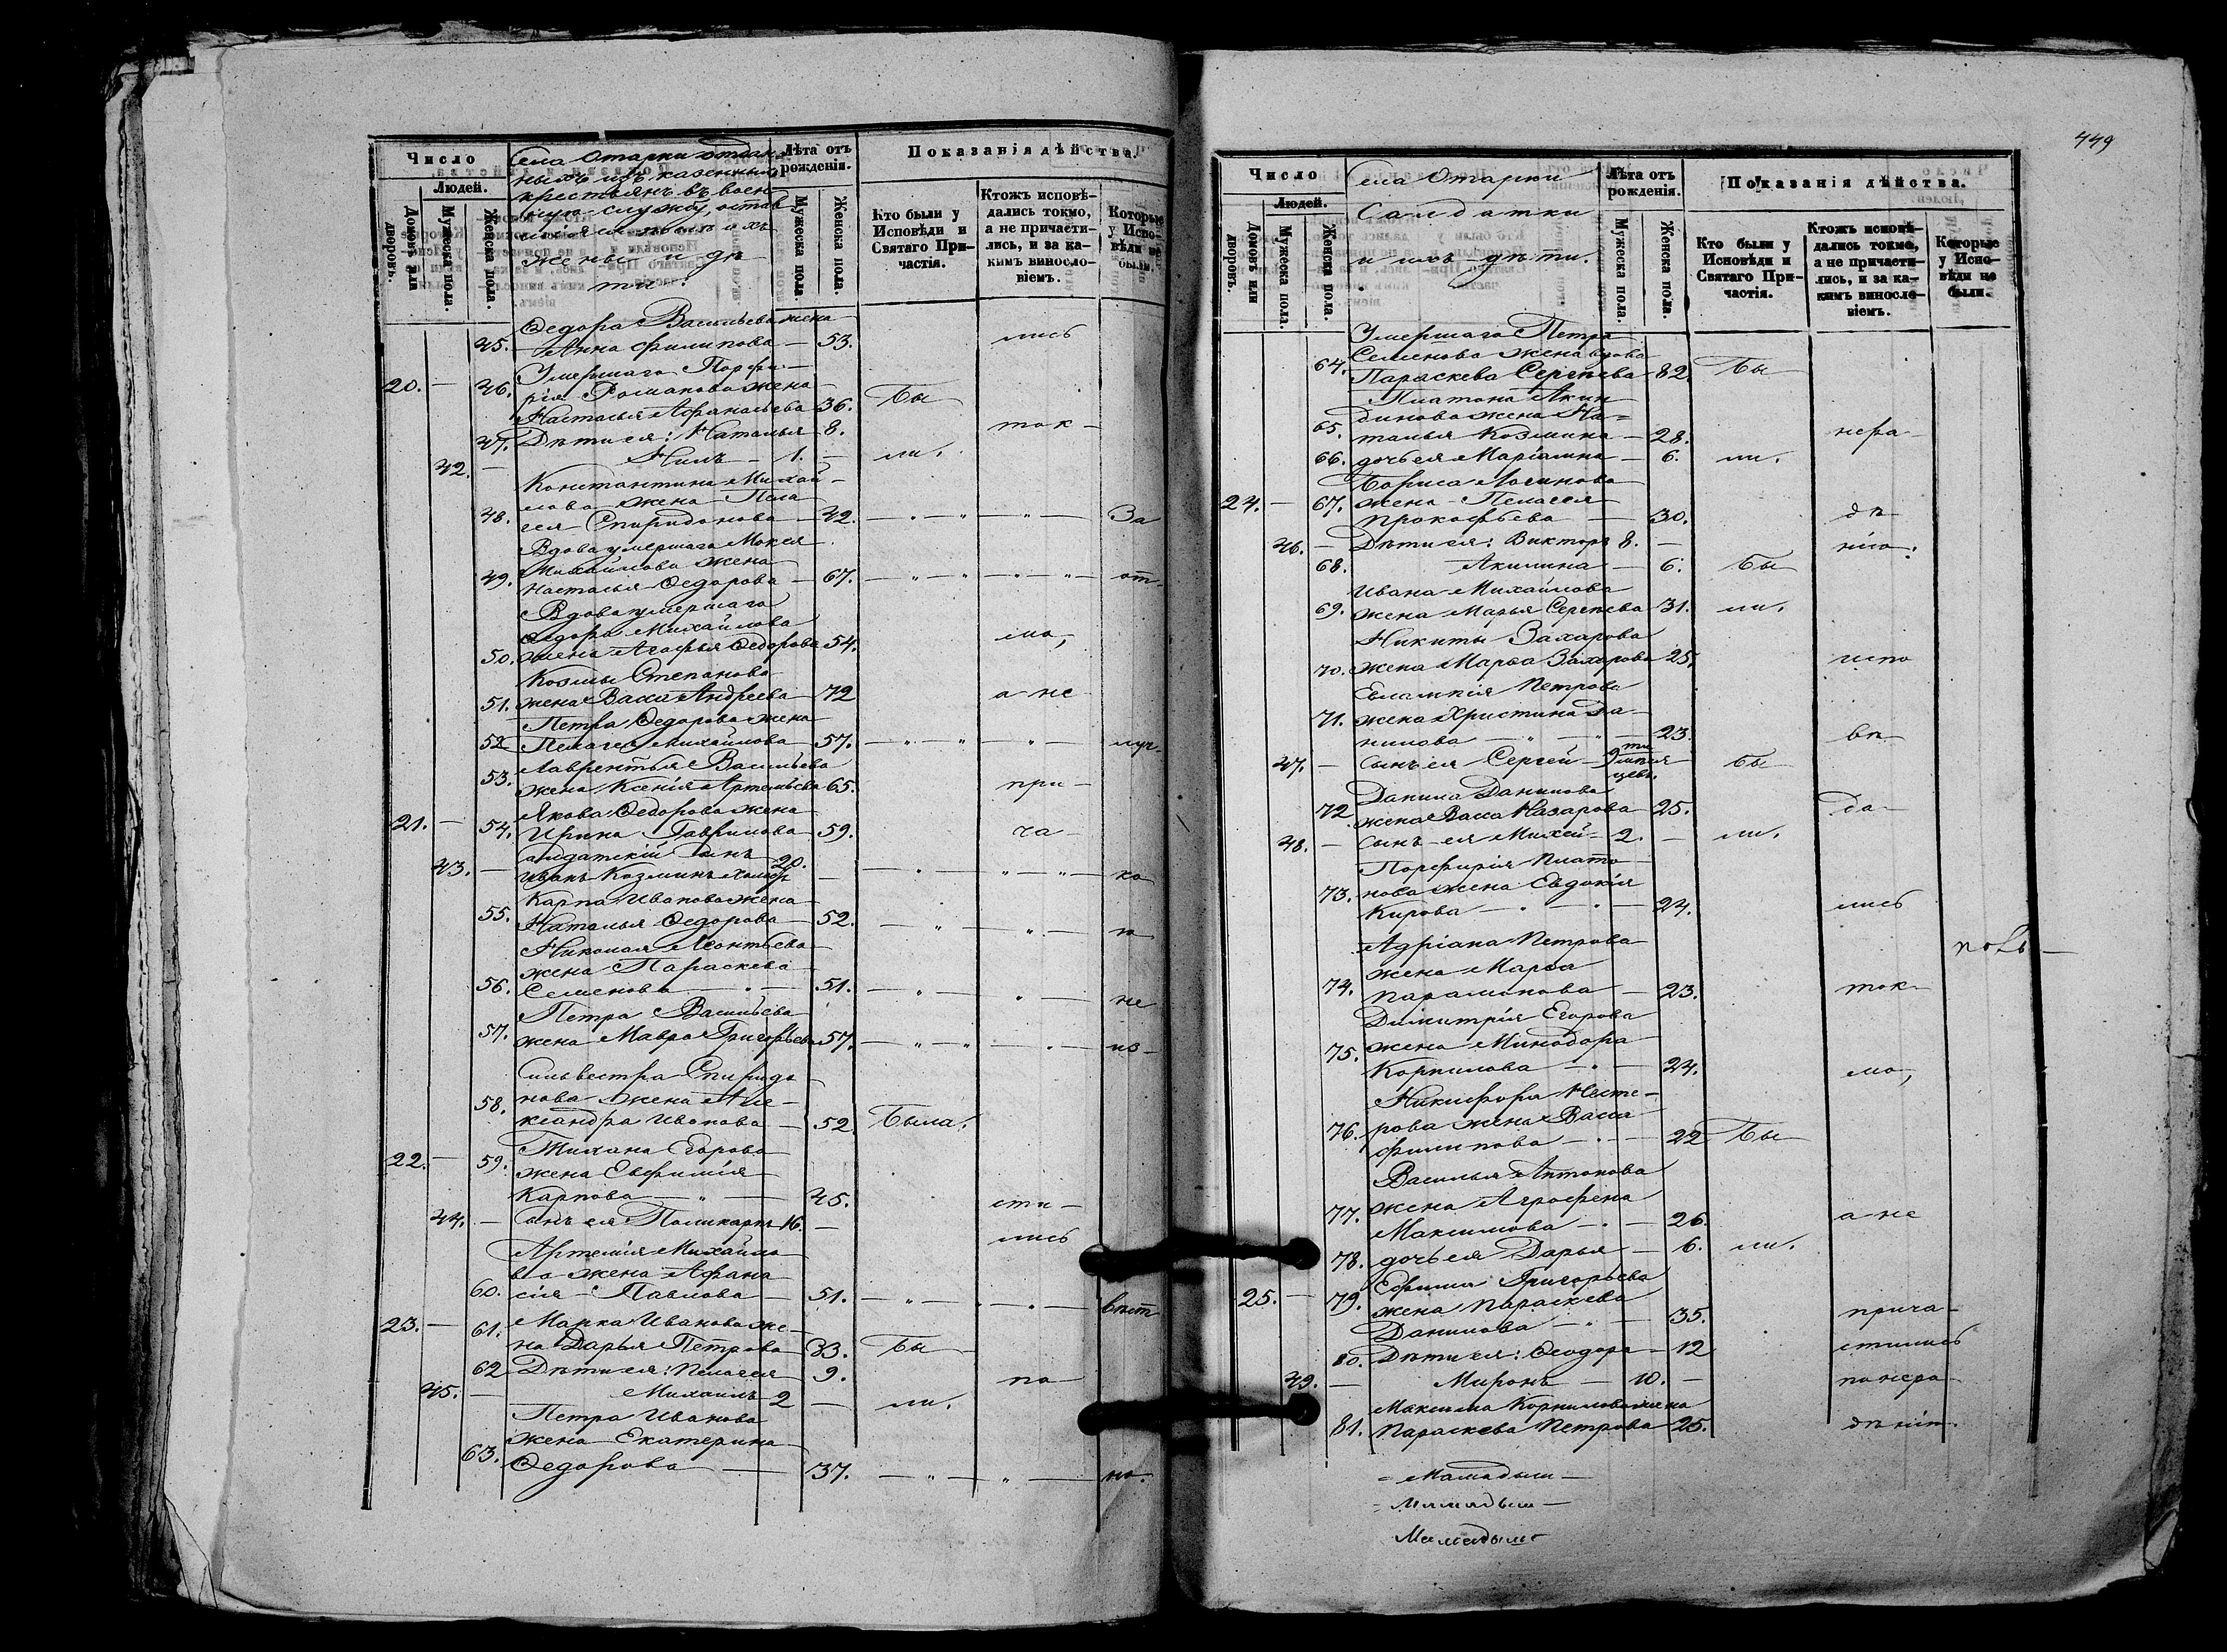 Число
Людей.
Домовъ или дворовъ.
Мужеска пола.
Женска пола.
Села Отарки отдан-
ныхъ изъ казенныхъ
крестьянъ въ воен-
ную службу, остав
шіяся
жены и дѣ
ти:
Лѣта отъ рожденія.
Мужеска пола.
Женска пола.
Показанія дѣйства.
Кто были у Исповѣди и Святаго При-частія.
Ктожъ исповѣ-дались токмо, а не причасти-лись, и за ка-кимъ винословіемъ.
Которые у Испо-вѣди не были.
Ѳедора Васильева жена
45. Анна Филипова — 53. лись
Умершаго Порфи-
20. — 46. рія Романова жена
Настасья Афанасьева 36. Бы
47. Дѣти ея: Наталья — 8. ток-
42. — Нилъ — 1. — ли.
Константина Михай-
лова жена Пела
48. гея Спиридонова — 42. — " — " — За
Вдова умершаго Мокея
Михайлова жена
49. Настасья Ѳедорова — 67. — " — " — " — " — от-
Вдова умершаго
Ѳедора Михайлова
50. жена Агафья Ѳедорова 54. мо,
Козмы Степанова
51. жена Васса Андреева — 72 а не
Петра Ѳедорова жена
52 Пелагея Михайлова — 57. — " — " — " — луч-
Лаврентья Васильева
53. жена Ксенія Артемьева 65. при-
Якова Ѳедорова жена
21. — 54. Ирина Гаврилова — 59. ча-
Салдатскій сынъ
43. — Иванъ Козминъ холостъ 20. — " — " — " — ко
Карпа Иванова жена
55. Наталья Ѳедорова — 52. — " — " — ю
Николая Леонтьева
жена Параскева
56. Семенова — " — 51. — " — " — не
Петра Васильева
57. жена Мавра Григорьева 57. — " — " — " — из-
Сильвестра Спиридо-
58. нова жена Але-
ксандра Иванова — 52 Была.
Тихана Егорова
22. — 59. жена Евфимія
Карпова — " — 45. сти-
44. — Сынъ ея Поликарпъ 16. — лись
Артемія Михайло
ва жена Афана
60. сія Павлова — 51. — " — " — " — вѣст-
23. — 61. Марка Иванова же-
на Дарья Петрова — 33. Бы
62 Дѣти ея: Пелагея — 9. по-
45. — Михаилъ 2 — ли.
Петра Иванова
жена Екатерина
63. Ѳедорова — 37. — " — " — но.
449
Число
Людей.
Домовъ или дворовъ.
Мужеска пола.
Женска пола.
Села Отарки
Салдатки
и ихъ дѣти.
Лѣта отъ рожденія.
Мужеска пола.
Женска пола.
Показанія дѣйства.
Кто были у Исповѣди и Святаго При-частія.
Ктожъ исповѣ-дались токмо, а не причасти-лись, и за ка-кимъ винословіемъ.
Которые у Испо-вѣди не были.
Умершаго Петра
Семенова жена вдова
64. Параскева Сергѣева 82. Бы
Платона Акин-
динова жена На=
65. талья Козмина — 28. нера-
66. дочь ея Маріамна — 6. ли.
Бориса Логинова
24. — 67. жена Пелагея
Прокофьева — 30. дѣ-
46. — Дѣти ея: Викторъ 8. — нію:
68. Акилина — 6. Бы
Ивана Михайлова
69. жена Марья Сергѣева 31. ли.
Никиты Захарова
70. жена Марѳа Захарова 25. испо
Евлампія Петрова
71. жена Христина Да-
нилова — " — " — 23. вѣ-
47. — Сынъ ея Сергей — 9ти мѣсяцевъ. Бы
Данила Данилова
72 жена Васса Назарова — 25. да-
48. — Сынъ ея Михей — 2. — ли.
Порфирія Плато-
73. нова жена Евдокія
Кирова — " — " — 24. лись
Адріана Петрова
жена Марѳа
74. Парамонова — 23. ток-
Димитрія Егорова
75. жена Минодора
Корнилова — " — 24. мо,
Никифора Несте-
76. рова жена Васса
Филипова — " — 22 Бы
Василья Антонова
77. жена Аграфена
Максимова — " — 26. а не
78. дочь ея Дарья — 6. ли.
Ефима Григорьева
25. — 79. жена Параскева
Данилова — " — 35. прича-
80. Дѣти ея: Ѳеодора — 12 стились
49. — Миронъ — 10. — по нера-
Максима Корнилова жена
81. Параскева Петрова 25. дѣнію.
= Мамадыш —
= Мамадыш —
Мамадыш